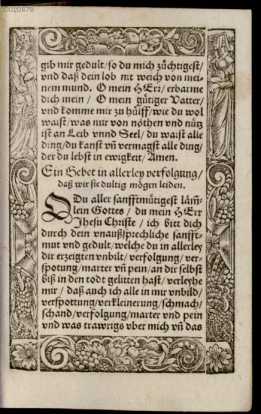 gib mir gedult / so du mich züchtigest /
vnd daß dein lob nit weich von mei-
nem mund. O mein HErr / erbarme
dich mein / O mein gütiger Vatter /
vnd komme mir zu hülff / wie du wol
waist / was mir von nöthen vnd nütz
ist an Leib vnnd Seel / du waist alle
ding / du kanst vn̄ vermagst alle ding /
der du lebst in ewigkeit / Amen.
Ein Gebet in allerley verfolgung /
daß wir sie dultig mögen leiden.
O Du aller sanfftmütigest läm̄-
lein Gottes / du mein HErr
Jhesu Christe / ich bitt dich
durch dein vnaußsprechliche sanfft-
mut vnd gedult / welche du in allerley
dir erzeigten vnbilt / verfolgung / ver-
spotung / marter vn̄ pein / an dir selbst
biß in den todt gelitten hast / verleyhe
mir / daß auch ich alle in mir vnbild /
verspottung / verkleinerung / schmach /
schand / verfolgung / marter vnd pein
vnd was trawrigs vber mich vn̄ das